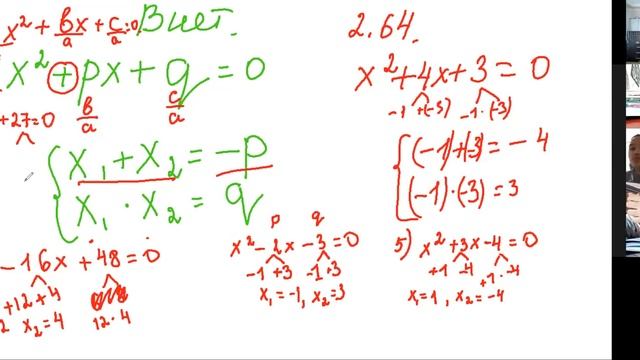 x² + b/a x + c/a = 0 Виет.
x² + px + q = 0
b/a c/a
+27=0
{ x₁ + x₂ = -p
x₁ · x₂ = q
- 16x + 48 = 0
+12+4
x₂ = 4 12·4
p q
x² - 2x - 3 = 0
-1+3 -1·3
x₁ = -1, x₂ = 3
2.64.
x² + 4x + 3 = 0
-1 +(-3) -1·(-3)
{ (-1)+(-3) = -4
(-1)·(-3) = 3
5) x² + 3x - 4 = 0
+1 -4 +1·-4
x₁ = 1, x₂ = -4